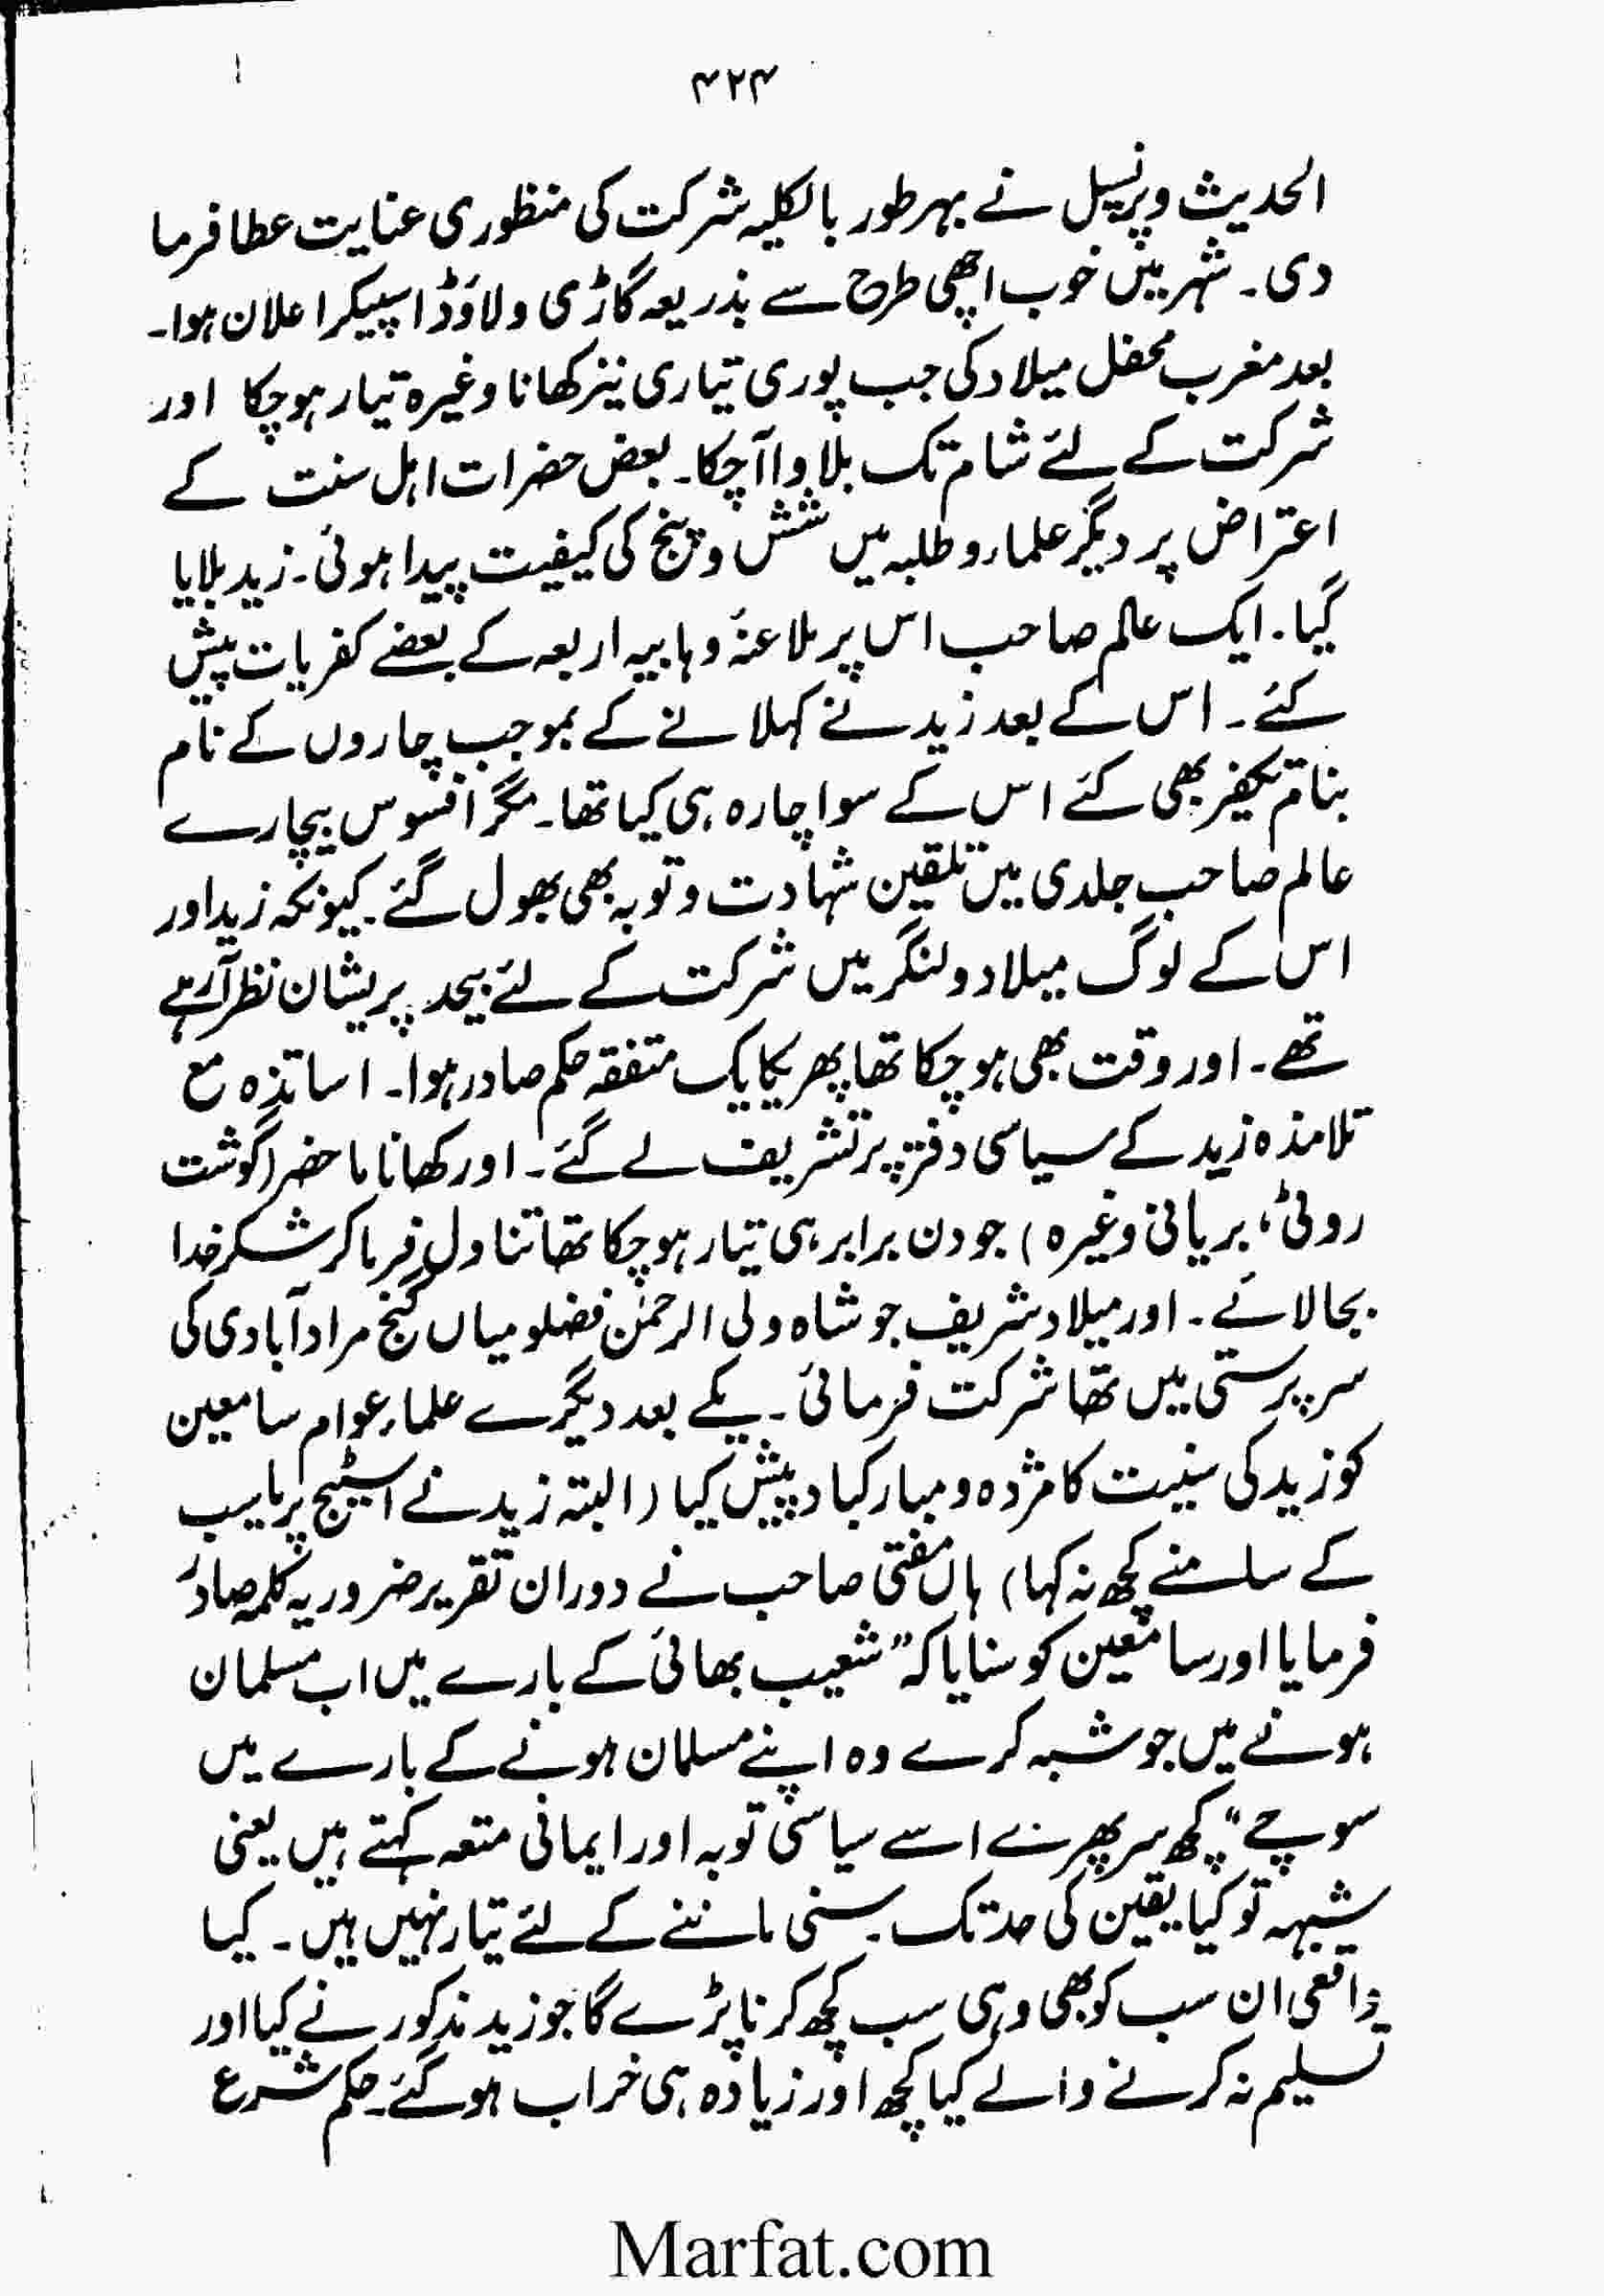 ۴۲۴
الحدیث و پرنسپل نے بہر طور بالکلیہ شرکت کی منظوری عنایت عطا فرما
دی۔ شہر میں خوب اچھی طرح سے بذریعہ گاڑی و لاؤڈ اسپیکر اعلان ہوا۔
بعد مغرب محفل میلاد کی جب پوری تیاری نیز کھانا وغیرہ تیار ہو چکا اور
شرکت کے لئے شام تک بلاوا آچکا۔ بعض حضرات اہل سنت کے
اعتراض پر دیگر علماء و طلبہ میں شش و پنج کی کیفیت پیدا ہوئی۔ زید بلایا
گیا۔ ایک عالم صاحب اس پر ملاعنۂ وہابیہ اربعہ کے بعضے کفریات پیش
کئے۔ اس کے بعد زید نے کہلانے کے بموجب چاروں کے نام
بنام تکفیر بھی کئے اس کے سوا چارہ ہی کیا تھا۔ مگر افسوس بیچارے
عالم صاحب جلدی میں تلقین شہادت و توبہ بھی بھول گئے۔ کیونکہ زید اور
اس کے لوگ میلاد و لنگر میں شرکت کے لئے بیحد پریشان نظر آرہے
تھے۔ اور وقت بھی ہو چکا تھا پھر یکایک متفقہ حکم صادر ہوا۔ اساتذہ مع
تلامذہ زید کے سیاسی دفتر پر تشریف لے گئے۔ اور کھانا ماحضر (گوشت
روٹی، بریانی وغیرہ) جو دن برابر ہی تیار ہو چکا تھا تناول فرما کر شکر خدا
بجالائے۔ اور میلاد شریف جو شاہ ولی الرحمٰن فضلو میاں گنج مرادآبادی کی
سرپرستی میں تھا شرکت فرمائی۔ یکے بعد دیگرے علماء عوام سامعین
کو زید کی سنیت کا مژدہ و مبارکباد پیش کیا (البتہ زید نے اسٹیج پر یا سب
کے سامنے کچھ نہ کہا) ہاں مفتی صاحب نے دوران تقریر ضرور یہ کلمہ صادر
فرمایا اور سامعین کو سنایا کہ ”شعیب بھائی کے بارے میں اب مسلمان
ہونے میں جو شبہ کرے وہ اپنے مسلمان ہونے کے بارے میں
سوچے“ کچھ سر پھرے اسے سیاسی توبہ اور ایمانی متعہ کہتے ہیں یعنی
شبہہ تو کیا یقین کی حد تک سنی ماننے کے لئے تیار نہیں ہیں۔ کیا
واقعی ان سب کو بھی وہی سب کچھ کرنا پڑے گا جو زید مذکور نے کیا اور
تسلیم نہ کرنے والے کیا کچھ اور زیادہ ہی خراب ہو گئے۔ حکم شرع
Marfat.com